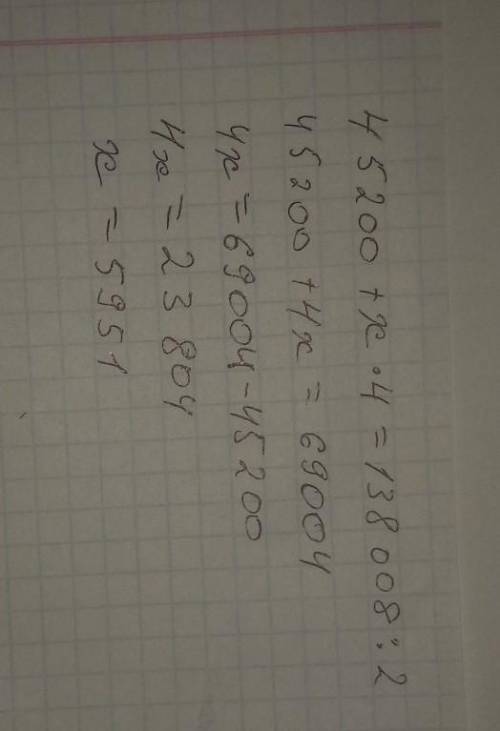 45200 + x · 4 = 138008 : 2
45200 + 4x = 69004
4x = 69004 - 45200
4x = 23804
x = 5951